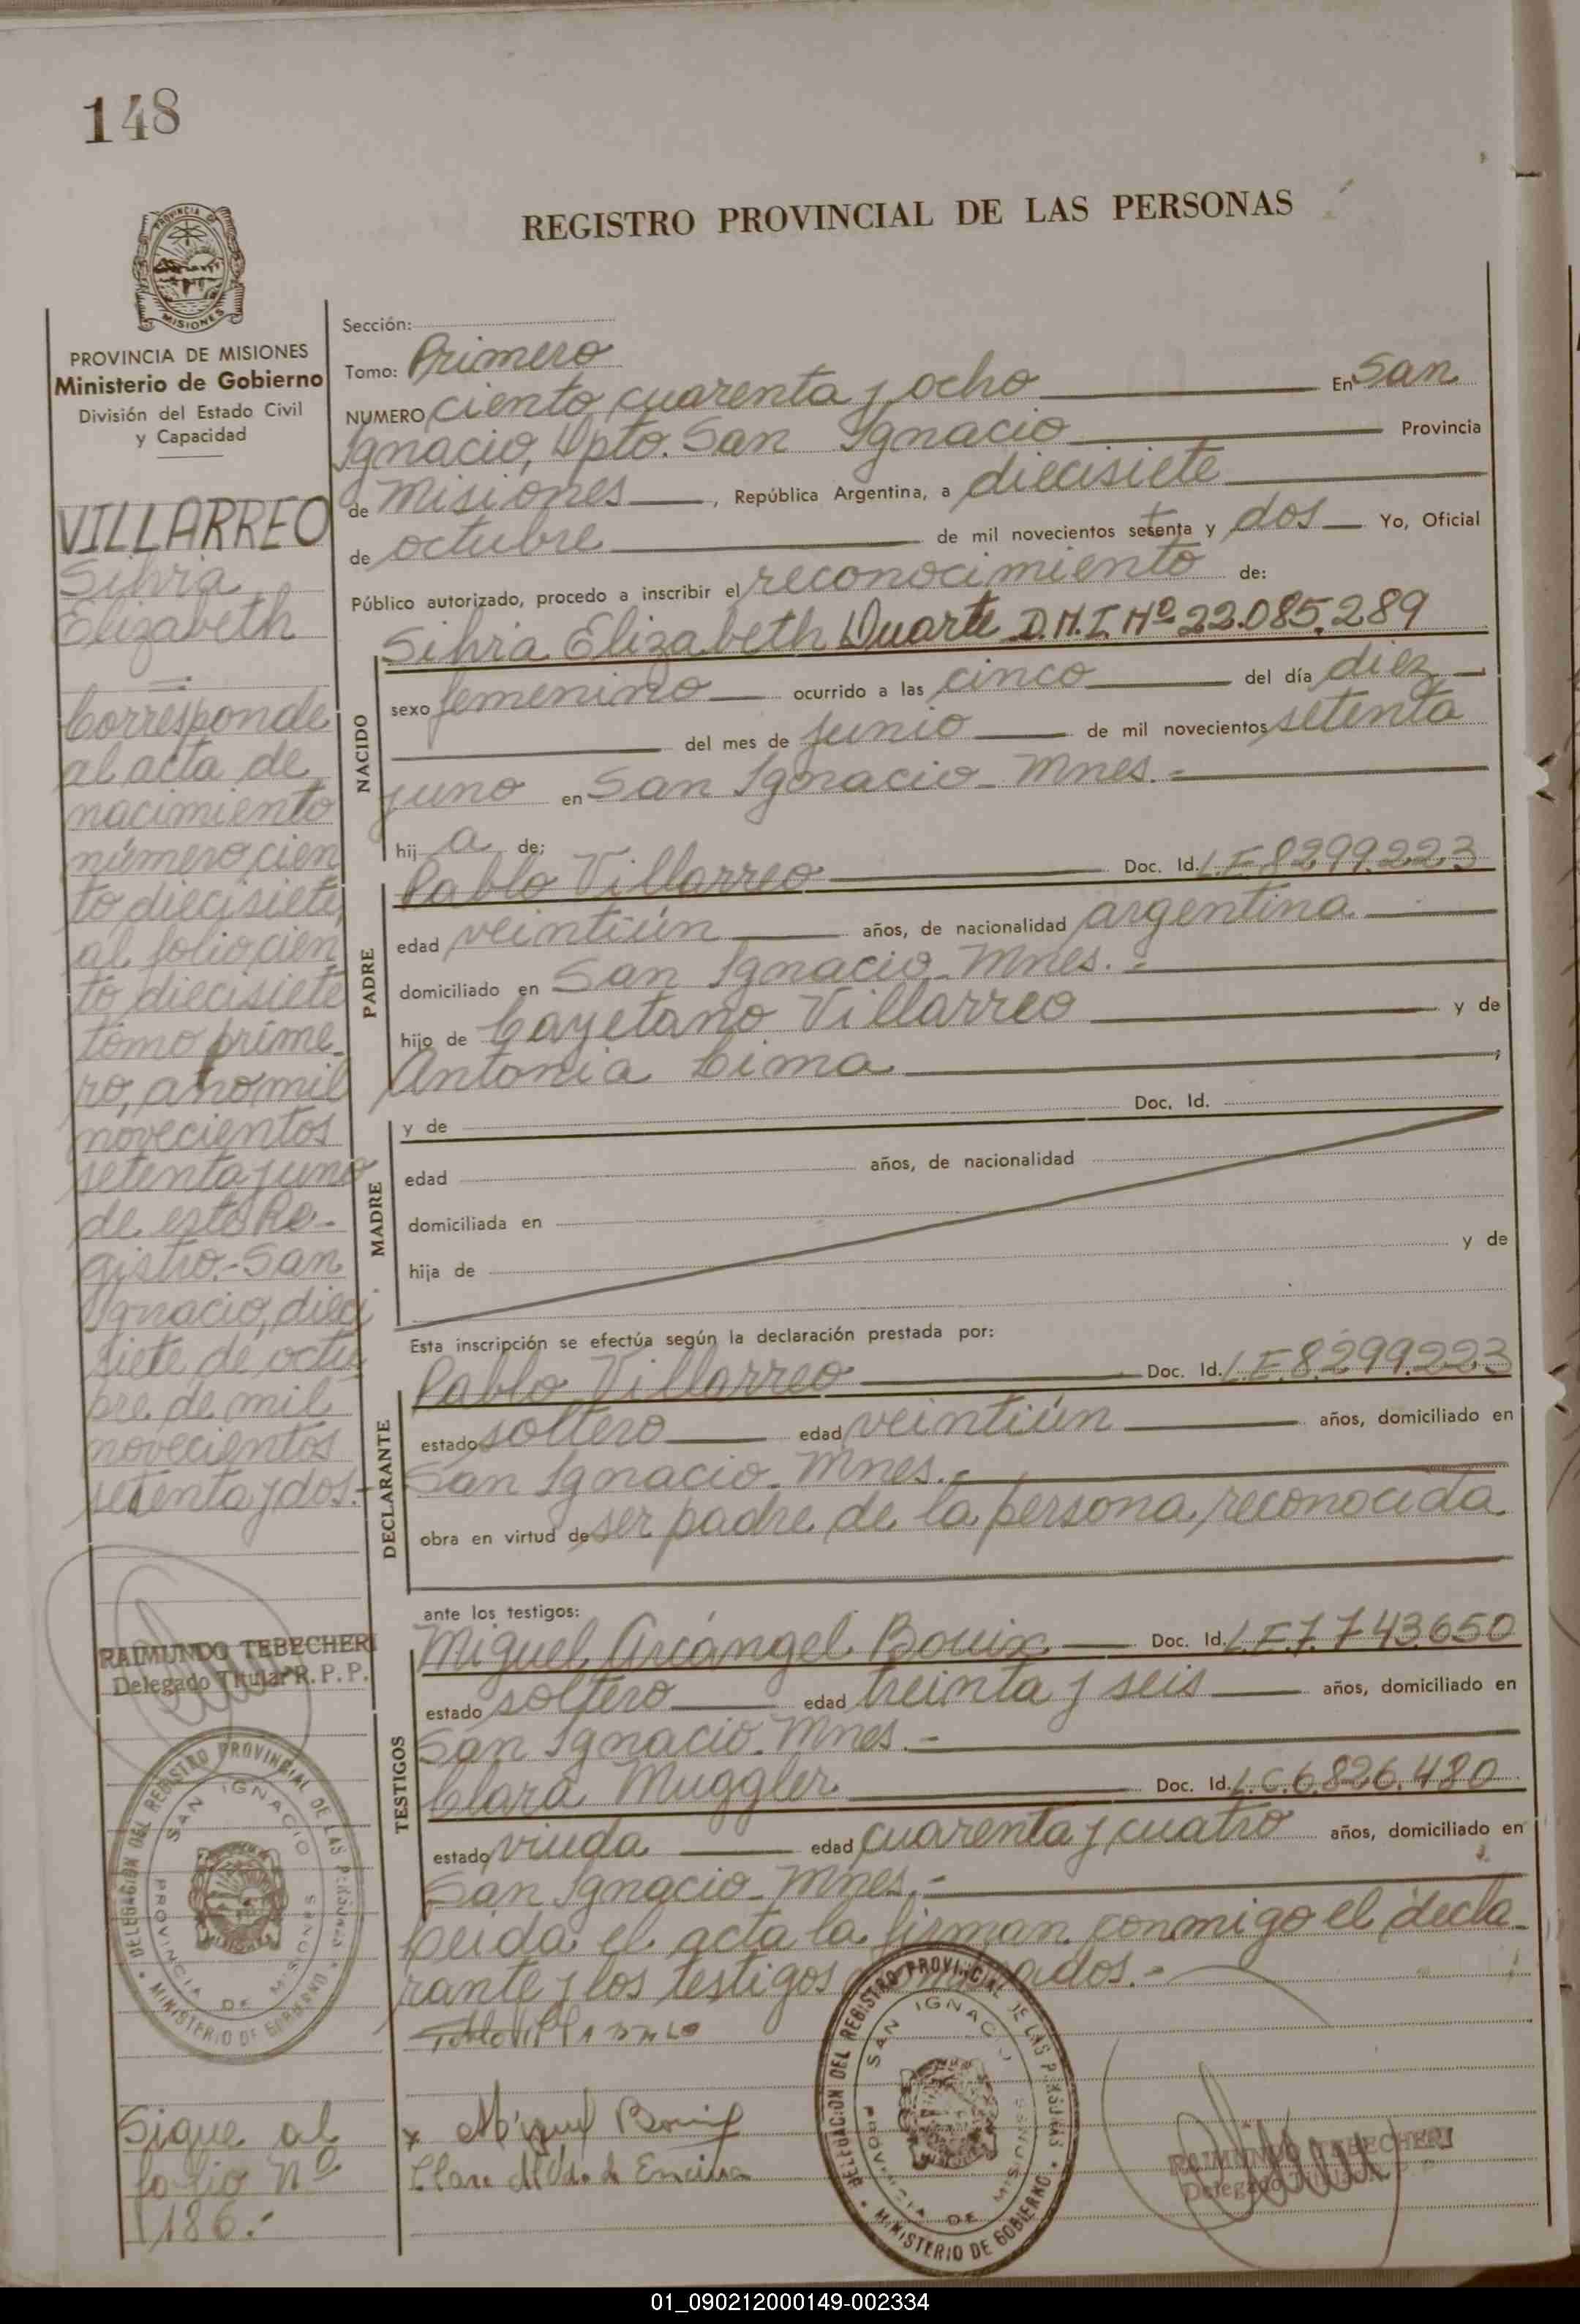 148
REGISTRO PROVINCIAL DE LAS PERSONAS
PROVINCIA DE MISIONES
PROVINCIA DE MISIONES
Ministerio de Gobierno
División del Estado Civil
y Capacidad
VILLARREO
Silvia
Elizabeth
Corresponde
al acta de
nacimiento
número cien
to diecisiete,
al folio cien
to diecisiete
tomo prime-
ro, año mil
novecientos
setenta y uno
de este Re-
gistro.- San
Ignacio, dieci
siete de octu
bre de mil
novecientos
setenta y dos.-
RAIMUNDO TEBECHERI
Delegado Titular R. P. P.
DELEGACION DEL REGISTRO PROVINCIAL DE LAS PERSONAS
SAN IGNACIO
PROVINCIA DE MISIONES
MINISTERIO DE GOBIERNO
Sigue al
folio Nº
186.-
Sección:
Tomo: Primero
NUMERO ciento cuarenta y ocho En San
Ignacio, Dpto. San Ignacio Provincia
de Misiones, República Argentina, a diecisiete
de octubre de mil novecientos setenta y dos Yo, Oficial
Público autorizado, procedo a inscribir el reconocimiento de:
NACIDO
Silvia Elizabeth Duarte D.N.I. Nº 22.085.289
sexo femenino ocurrido a las cinco del día diez
del mes de junio de mil novecientos setenta
y uno en San Ignacio - Mnes.-
hij a de:
PADRE
Pablo Villarreo Doc. Id. L.E 8.299.223
edad veintiún años, de nacionalidad argentina
domiciliado en San Ignacio - Mnes.-
hijo de Cayetano Villarreo y de
Antonia Cima ,
MADRE
y de Doc. Id.
edad años, de nacionalidad
domiciliada en
hija de y de
Esta inscripción se efectúa según la declaración prestada por:
DECLARANTE
Pablo Villarreo Doc. Id. L.E.8.299.223
estado soltero edad veintiún años, domiciliado en
San Ignacio - Mnes.-
obra en virtud de ser padre de la persona reconocida
ante los testigos:
TESTIGOS
Miguel Arcángel Bouix Doc. Id. L.E.7.743.650
estado soltero edad treinta y seis años, domiciliado en
San Ignacio - Mnes.-
Clara Muggler Doc. Id. L.C.6.826.480
estado viuda edad cuarenta y cuatro años, domiciliado en
San Ignacio - Mnes.-
Leida el acta la firman conmigo el decla-
rante y los testigos
Pablo
x Miguel
Clara
DELEGACION DEL REGISTRO PROVINCIAL DE LAS PERSONAS
SAN IGNACIO
PROVINCIA DE MISIONES
MINISTERIO DE GOBIERNO
RAIMUNDO TEBECHERI
Delegado Titular
01_090212000149-002334